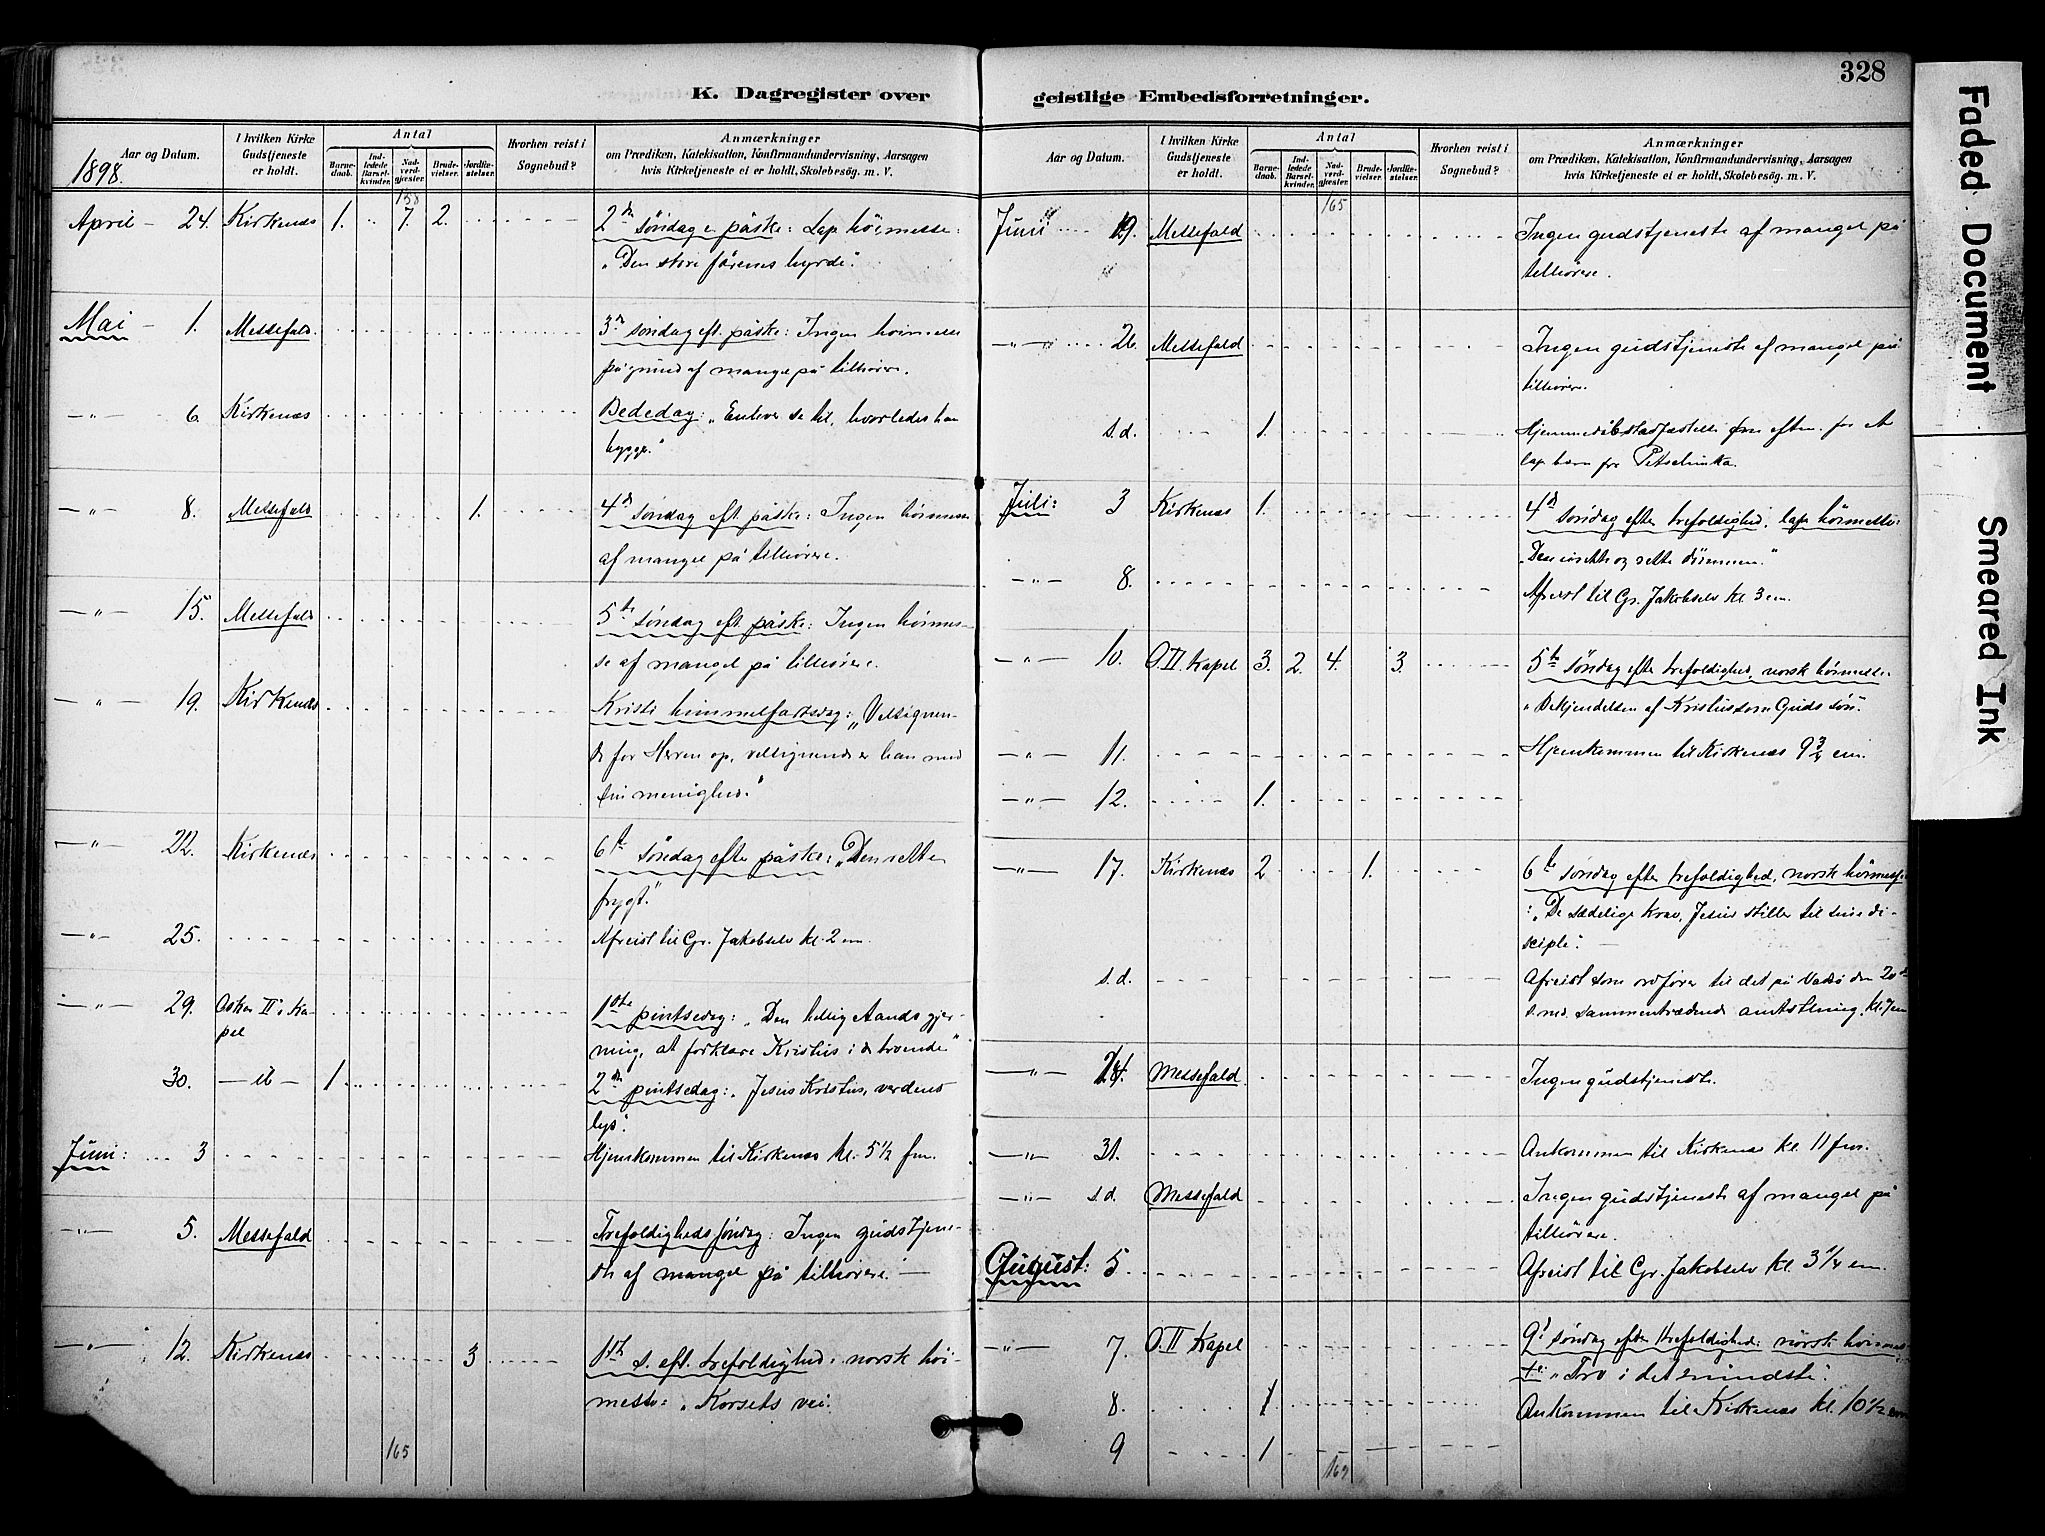 328
K. Dagregister over geistlige Embedsforretninger.
Aar og Datum.
I hvilken Kirke Gudstjeneste er holdt.
Antal
Barnedaab.
Indledede Barselkvinder.
Nadverdgjæster.
Brudevielser.
Jordfæstelser.
Hvorhen reist i Sognebud?
Anmærkninger
om Prædiken, Katekisation, Konfirmandundervisning, Aarsagen
hvis Kirketjeneste ei er holdt, Skolebesøg. m. V.
1898.
158
April - 24. Kirkenæs 1. 7. 2. 2den Søndag e. påske: Lap. høimesse:
"Den store fårenes hyrde".
Mai - 1. Messefald. 3die søndag eft. påske: Ingen høimesse
på grund af mangel på tilhørere.
-"- 6. Kirkenæs Bededag: "Enhver se til, hvorledes han
bygger."
-"- 8. Messefald 1. 4de søndag eft påske: Ingen høimesse
af mangel på tilhørere.
-"- 15. Messefald 5te søndag eft. påske: Ingen høimes-
se af mangel på tilhørere.
-"- 19. Kirkenæs Kristi himmelfartsdag: "Velsignen-
de for Herren op, velsignende er han med
sin menighed."
-"- 22. Kirkenæs 6te søndag efter påske: "Den rette
frygt."
-"- 25. Afreist til Gr. Jakobselv kl. 2 em.
-"- 29. Oskar II's Ka-
pel 1ste pintsedag: "Den hellig Aands gjer-
ning, at forklare Kristus i de troende"
30. -ib- 1. 2den pintsedag: "Jesus Kristus, verdens
lys".
Juni: 3 Hjemkommen til Kirkenæs kl. 5 1/2 fm.
-"- 5. Messefald Trefoldigheds søndag: Ingen gudstjene-
ste af mangel på tilhørere. -
-"- 12. Kirkenæs 3 1ste s. eft. trefoldighed: norsk høi-
messe: "Korsets vei.
165
Aar og Datum.
I hvilken Kirke Gudstjeneste er holdt.
Antal
Barnedaab.
Indledede Barselkvinder.
Nadverdgjæster.
Brudevielser.
Jordfæstelser.
Hvorhen reist i Sognebud?
Anmærkninger
om Prædiken, Katekisation, Konfirmandundervisning, Aarsagen
hvis Kirketjeneste ei er holdt, Skolebesøg. m. V.
165
Juni 19. Messefald Ingen gudstjeneste af mangel på
tilhørere.
-"- 26. Messefald Ingen gudstjeneste af mangel på
tilhørere.
s.d. 1. Hjemmedåb stadfæstelse eftm. for et
lap. barn fra Petschinka.
Juli: 3 Kirkenæs 1. 4de søndag efter trefoldighed, lap. høimesse:
"Den rette dømmen."
-"- 8. Afreist til Gr. Jakobselv kl. 3 em.
-"- 10. O.II. Kapel 3. 2. 4. 3. 5te søndag efter trefoldighed, norsk høimesse:
"Bekjendelsen af Kristus som Guds søn."
-"- 11. Hjemkommen til Kirkenæs 9 3/4 em.
-"- 12. 1.
-"- 17. Kirkenæs 2 1. 6te søndag efter trefoldighed, norsk høimesse
: "De sædelige Krav, Jesus stiller til sine di-
sciple". -
s.d. Afreist som ordfører til det på Vadsø den 20de
s. md. sammentrædende amtsthing. kl. 7 em
-"- 24. Messefald Ingen gudstjeneste.
-"- 31. Ankommen til Kirkenæs kl. 11 fm.
-"- s.d. Messefald Ingen gudstjeneste af mangel på
tilhørere.
August: 5. Afreist til Gr. Jakobselv kl. 3 1/4 em.
-"- 7. O.II Kapel 9d søndag efter trefoldighed: norsk høimes-
se: "Tro i det mindste".
8. 1 Ankommen til Kirkenæs kl. 10 1/2 em
9 1
169
Faded Document
Smeared Ink